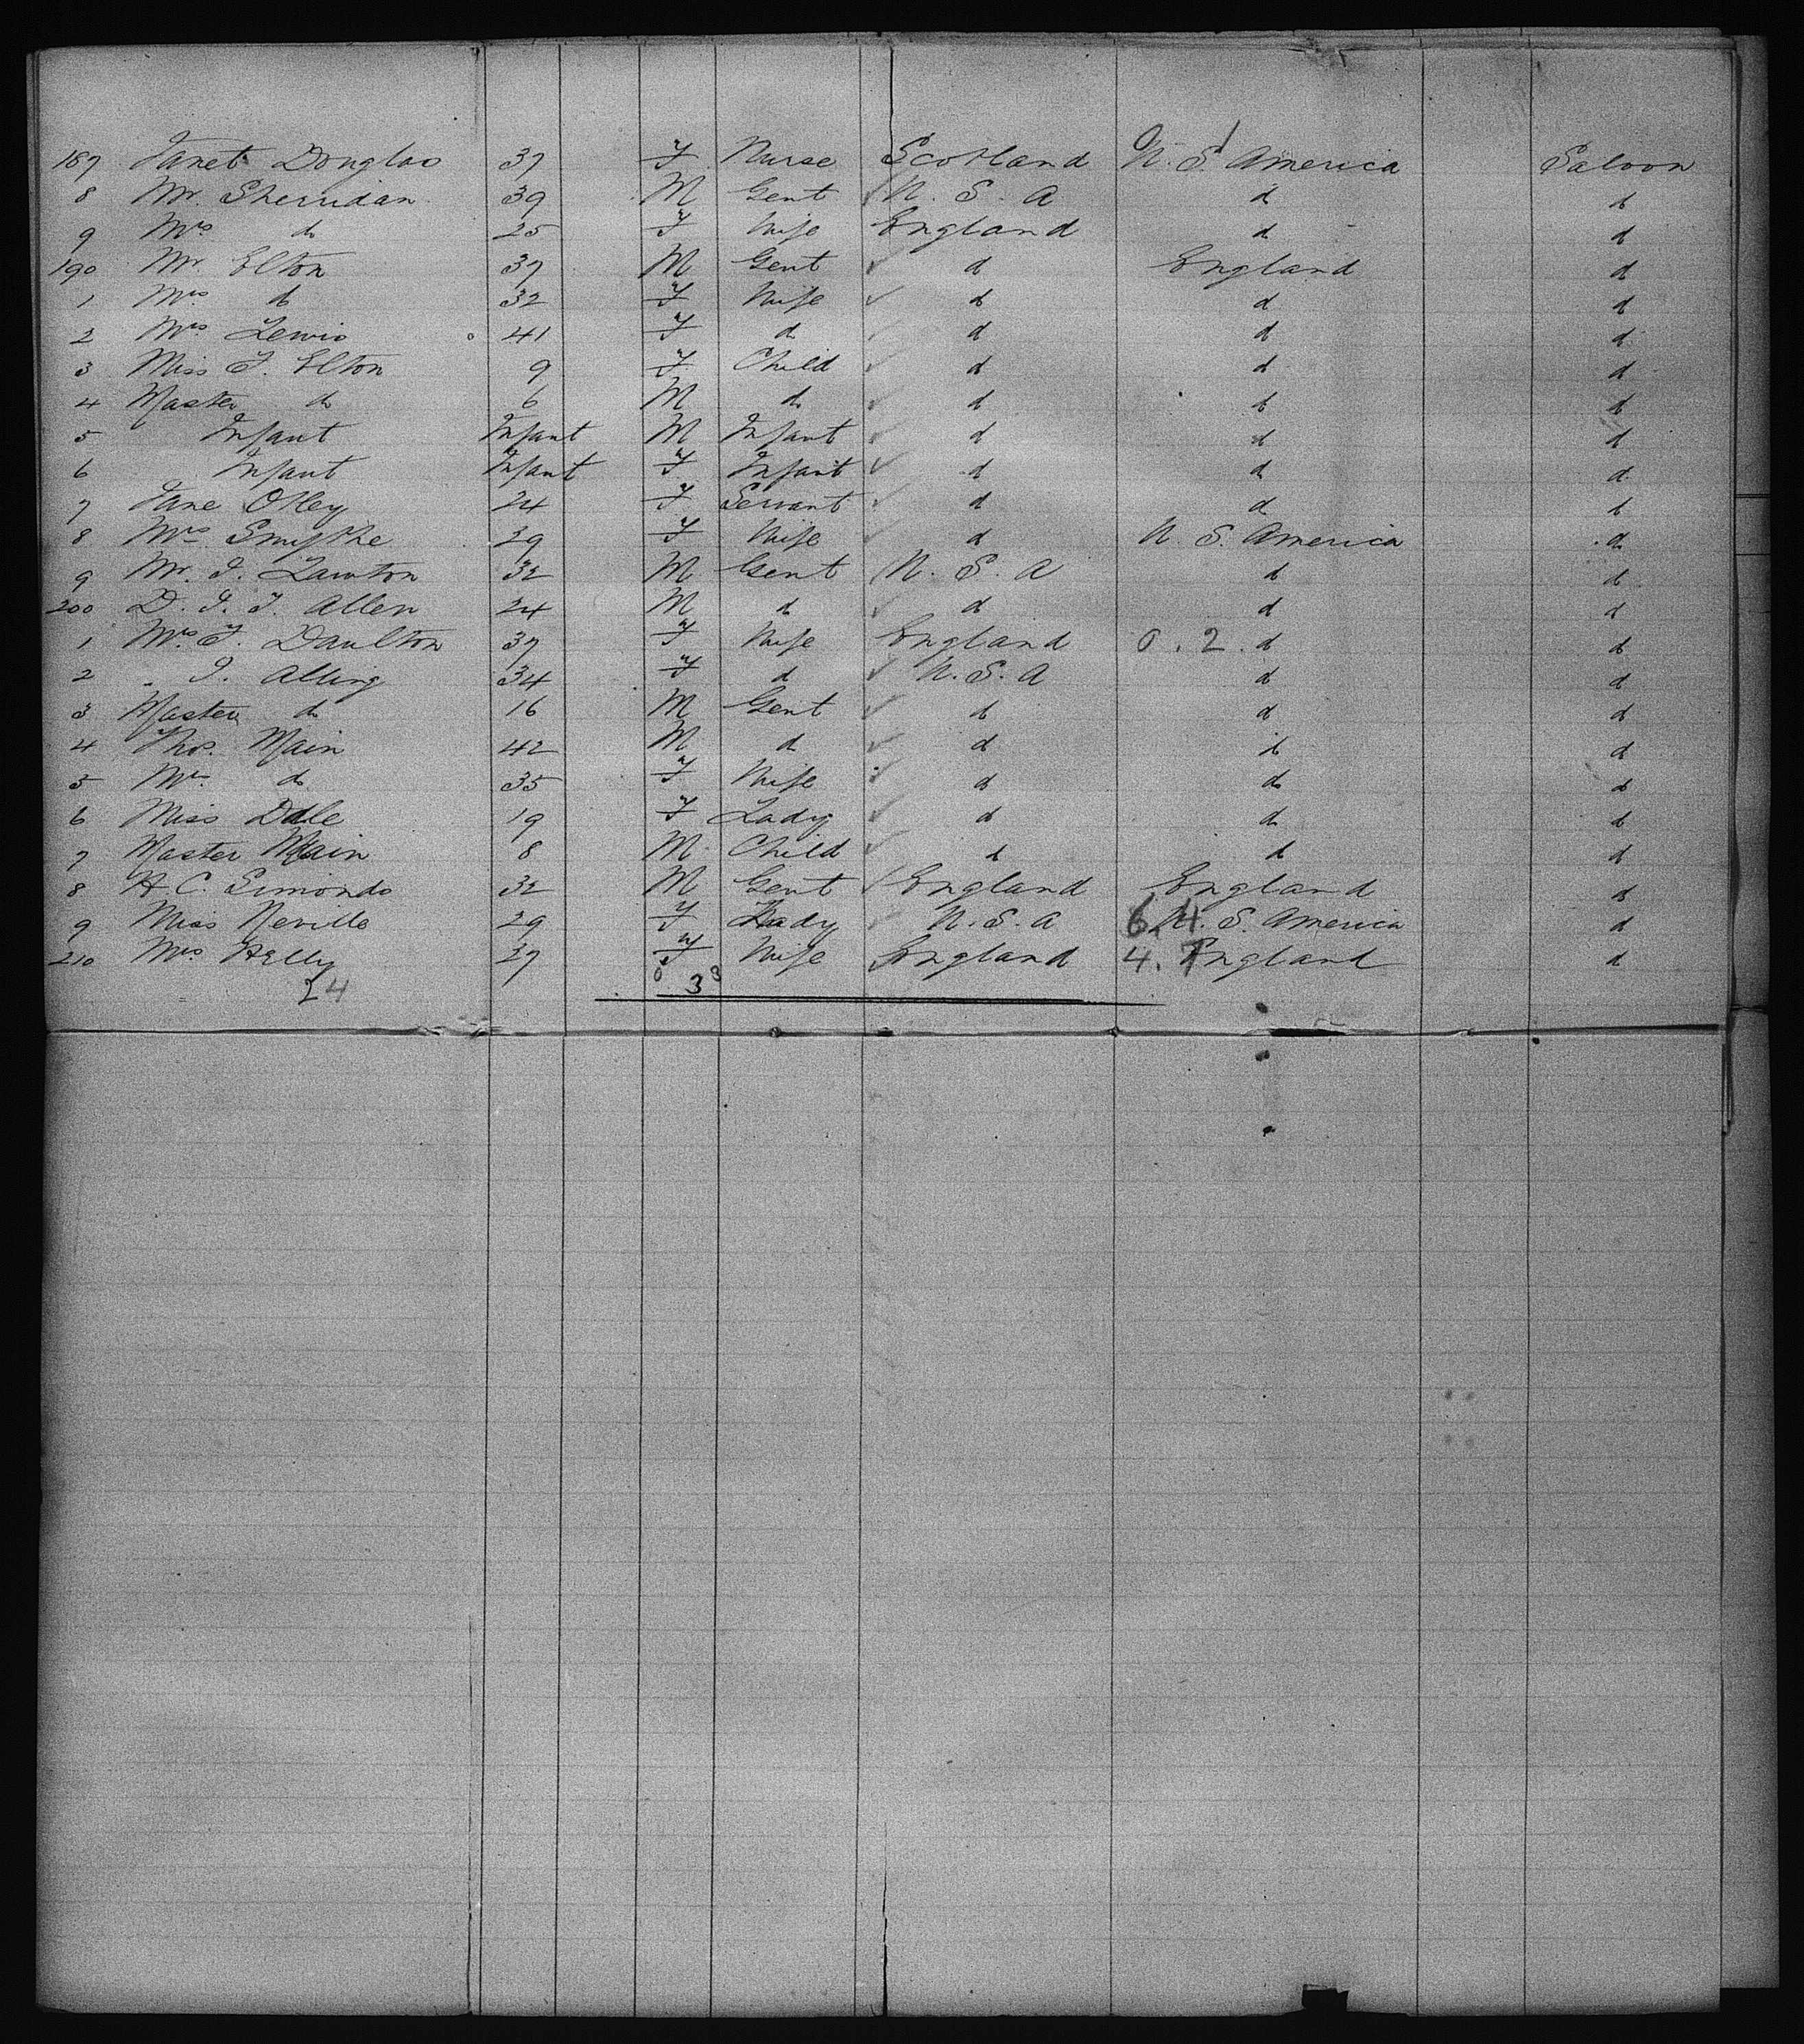 187 Janet Douglas 37 F Nurse Scotland U. S. America Saloon
8 Mr. Sherridan 39 M Gent U. S. A d d
9 Mrs d 25 F Wife England d d
190 Mr. Elton 37 M Gent d England d
1 Mrs d 32 F Wife d d d
2 Mrs Lewis 41 F d d d d
3 Miss F. Elton 9 F Child d d d
4 Master d 6 M d d d d
5 Infant Infant M Infant d d d
6 Infant Infant F Infant d d d
7 Jane Olley 24 F Servant d d d
8 Mrs Smythe 29 F Wife d U. S. America d
9 Mr. J. Lawton 32 M Gent U. S. A d d
200 D. J. T. Allen 24 M d d d d
1 Mrs. F. Daulton 37 F Wife England 0. 2. d d
2 " J. Alling 34 F d U. S. A d d
3 Master d 16 M Gent d d d
4 Thos. Main 42 M d d d d
5 Mrs d 35 F Wife d d d
6 Miss Dale 19 F Lady d d d
7 Master Main 8 M Child d d d
8 H. C. Simonds 32 M Gent England England d
9 Miss Neville 29 F Lady U. S. A 6. 4 U. S. America d
210 Mrs Helly 37 F Wife England 4. 7 England d
24 0 3 3